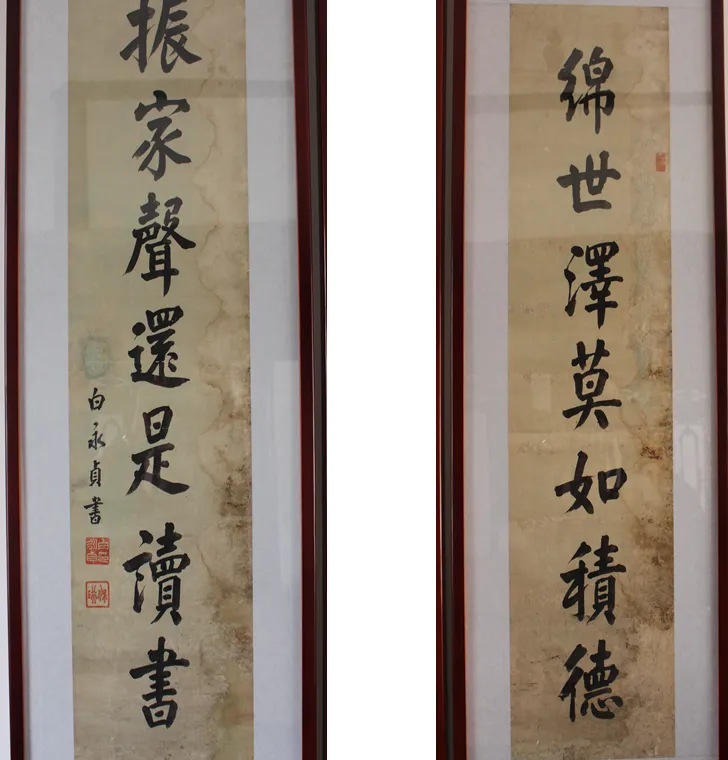 綿世澤莫如積德
振家聲還是讀書
白永貞書